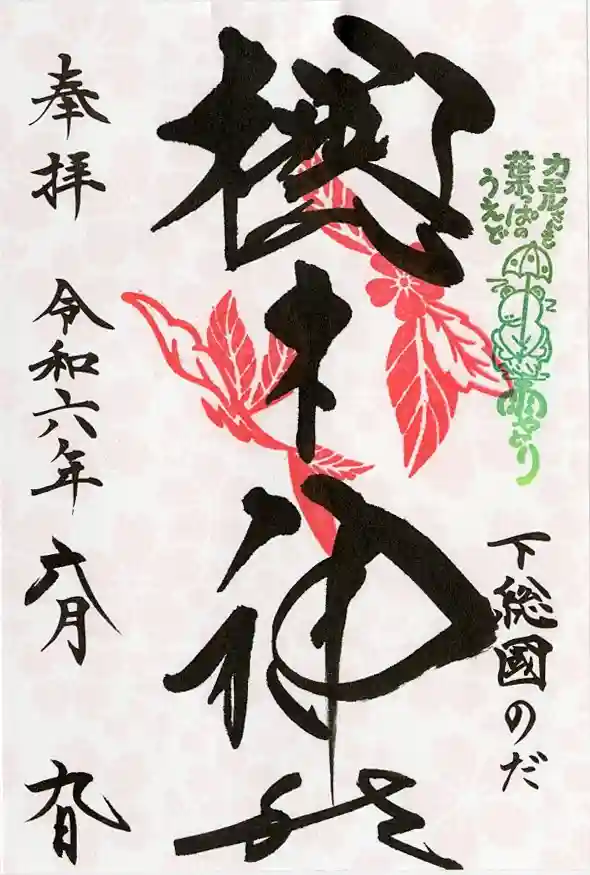 カエルさんも
葉っぱの
うえで
雨やどり
下総國のだ
櫻木神社
奉拝
令和六年 六月 九日